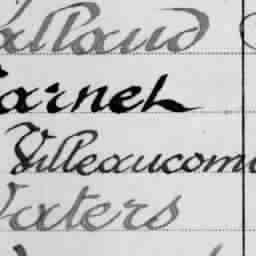 alland
arnel
Villeaucom
aters